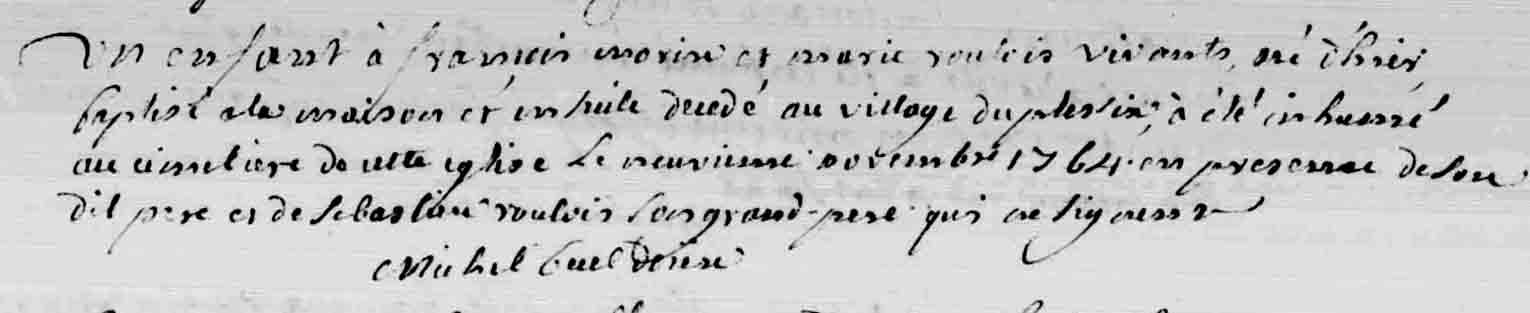 Un enfant à françois morin et marie roulois vivants, né d'hier,
baptisé a la maison et ensuite decedé au village du plessix, a été inhumé
au cimetiere de cette eglise le neuvieme novembre 1764 en presence de son
dit pere et de sebastien roulois son grand-pere qui ne signent
Michel